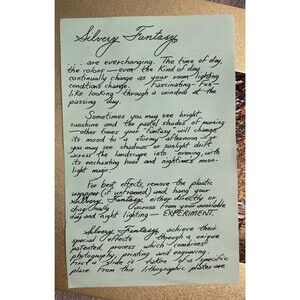 Silvery Fantasy
are everchanging. The time of day,
the colors — even the kind of day
continually change as your room lighting
conditions change. Fascinating - fun -
like looking through a window at the
passing day.
Sometimes you may see bright
sunshine and the pastel shades of morning
- other times your "fantasy" will change
its mood to a stormy afternoon - or
you may see shadows or sunlight drift
across the landscape into evening, with
its enchanting hues and nighttime's moon-
light magic.
For best effects, remove the plastic
wrapper (if unframed) and hang your
Silvery Fantasy either directly or
diagonally across from your available
day and night lighting — EXPERIMENT.
Silvery Fantasy achieve their
special effects through a unique
patented process which combines
photography, printing and engraving.
First a slide is taken of a specific
place. From this lithographic plates are